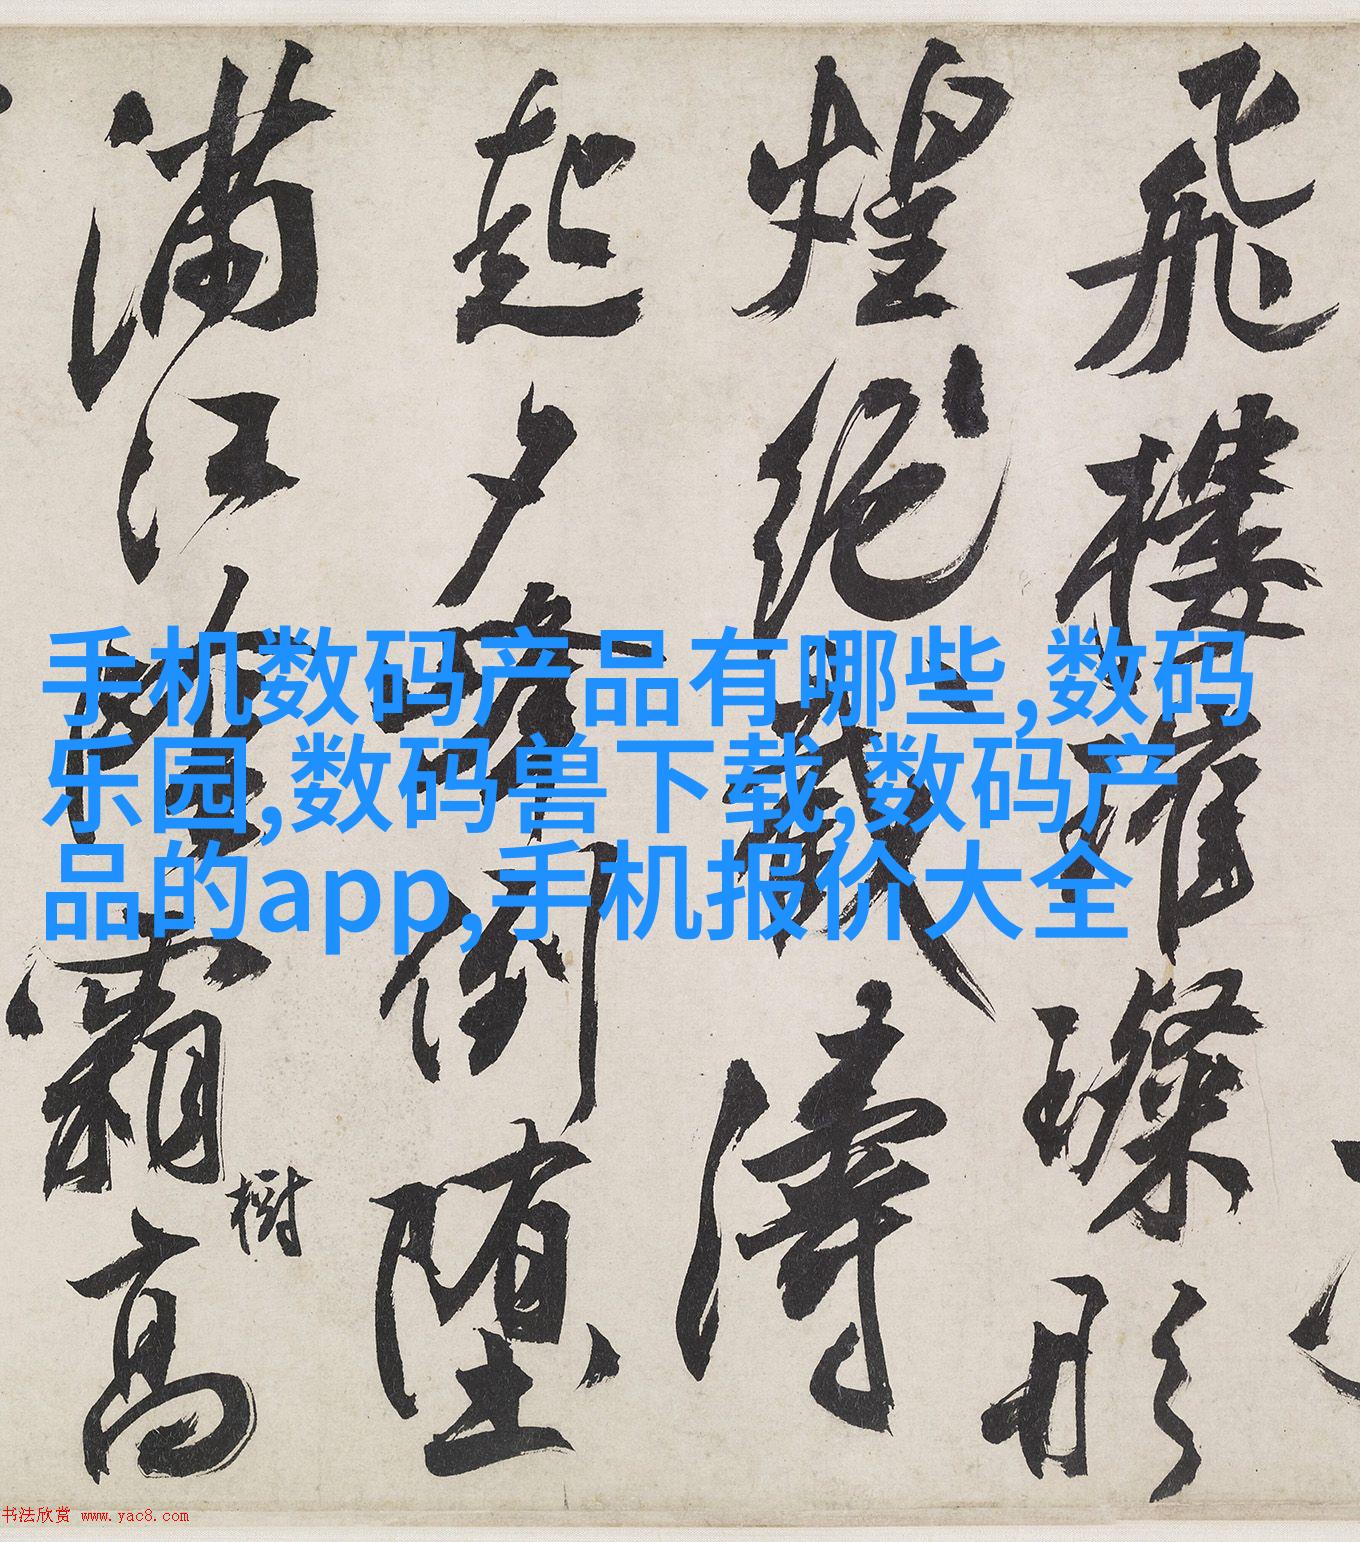 手机数码产品有哪些,数码
乐园,数码兽下载,数码产
品的app,手机报价大全
飛樓璨彤
煌絶濤
起夕峯倒墮
滿江陰霜高
樹
书法欣赏 www.yac8.com